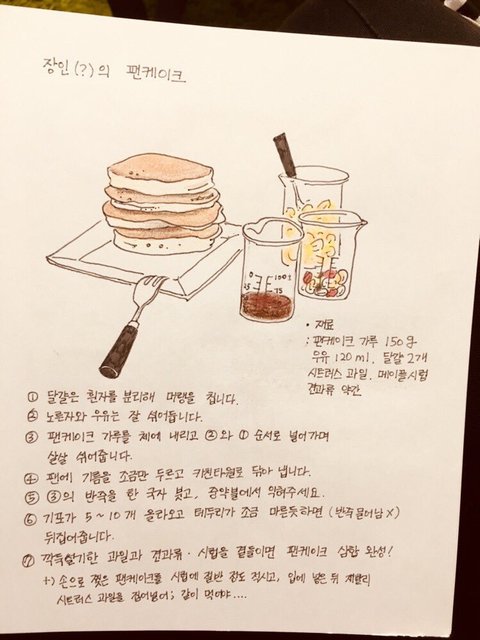 장인(?)의 팬케이크
0 100%
25 75
• 재료
; 팬케이크 가루 150g
우유 120ml. 달걀 2개
시트러스 과일. 메이플시럽
견과류 약간
① 달걀은 흰자를 분리해 머랭을 칩니다.
② 노른자와 우유는 잘 섞어둡니다.
③ 팬케이크 가루를 체에 내리고 ②와 ① 순서로 넣어가며
살살 섞어줍니다.
④ 팬에 기름을 조금만 두르고 키친타월로 닦아 냅니다.
⑤ ③의 반죽을 한 국자 넣고, 중약불에서 익혀주세요.
⑥ 기포가 5~10개 올라오고 테두리가 조금 마른듯하면 (반죽묻어남X)
뒤집어줍니다.
⑦ 깍둑썰기한 과일과 견과류·시럽을 곁들이면 팬케이크 삼합 완성!
+) 손으로 찢은 팬케이크를 시럽에 절반 정도 적시고, 입에 넣은 뒤 재빨리
시트러스 과일을 집어넣어; 같이 먹어야....